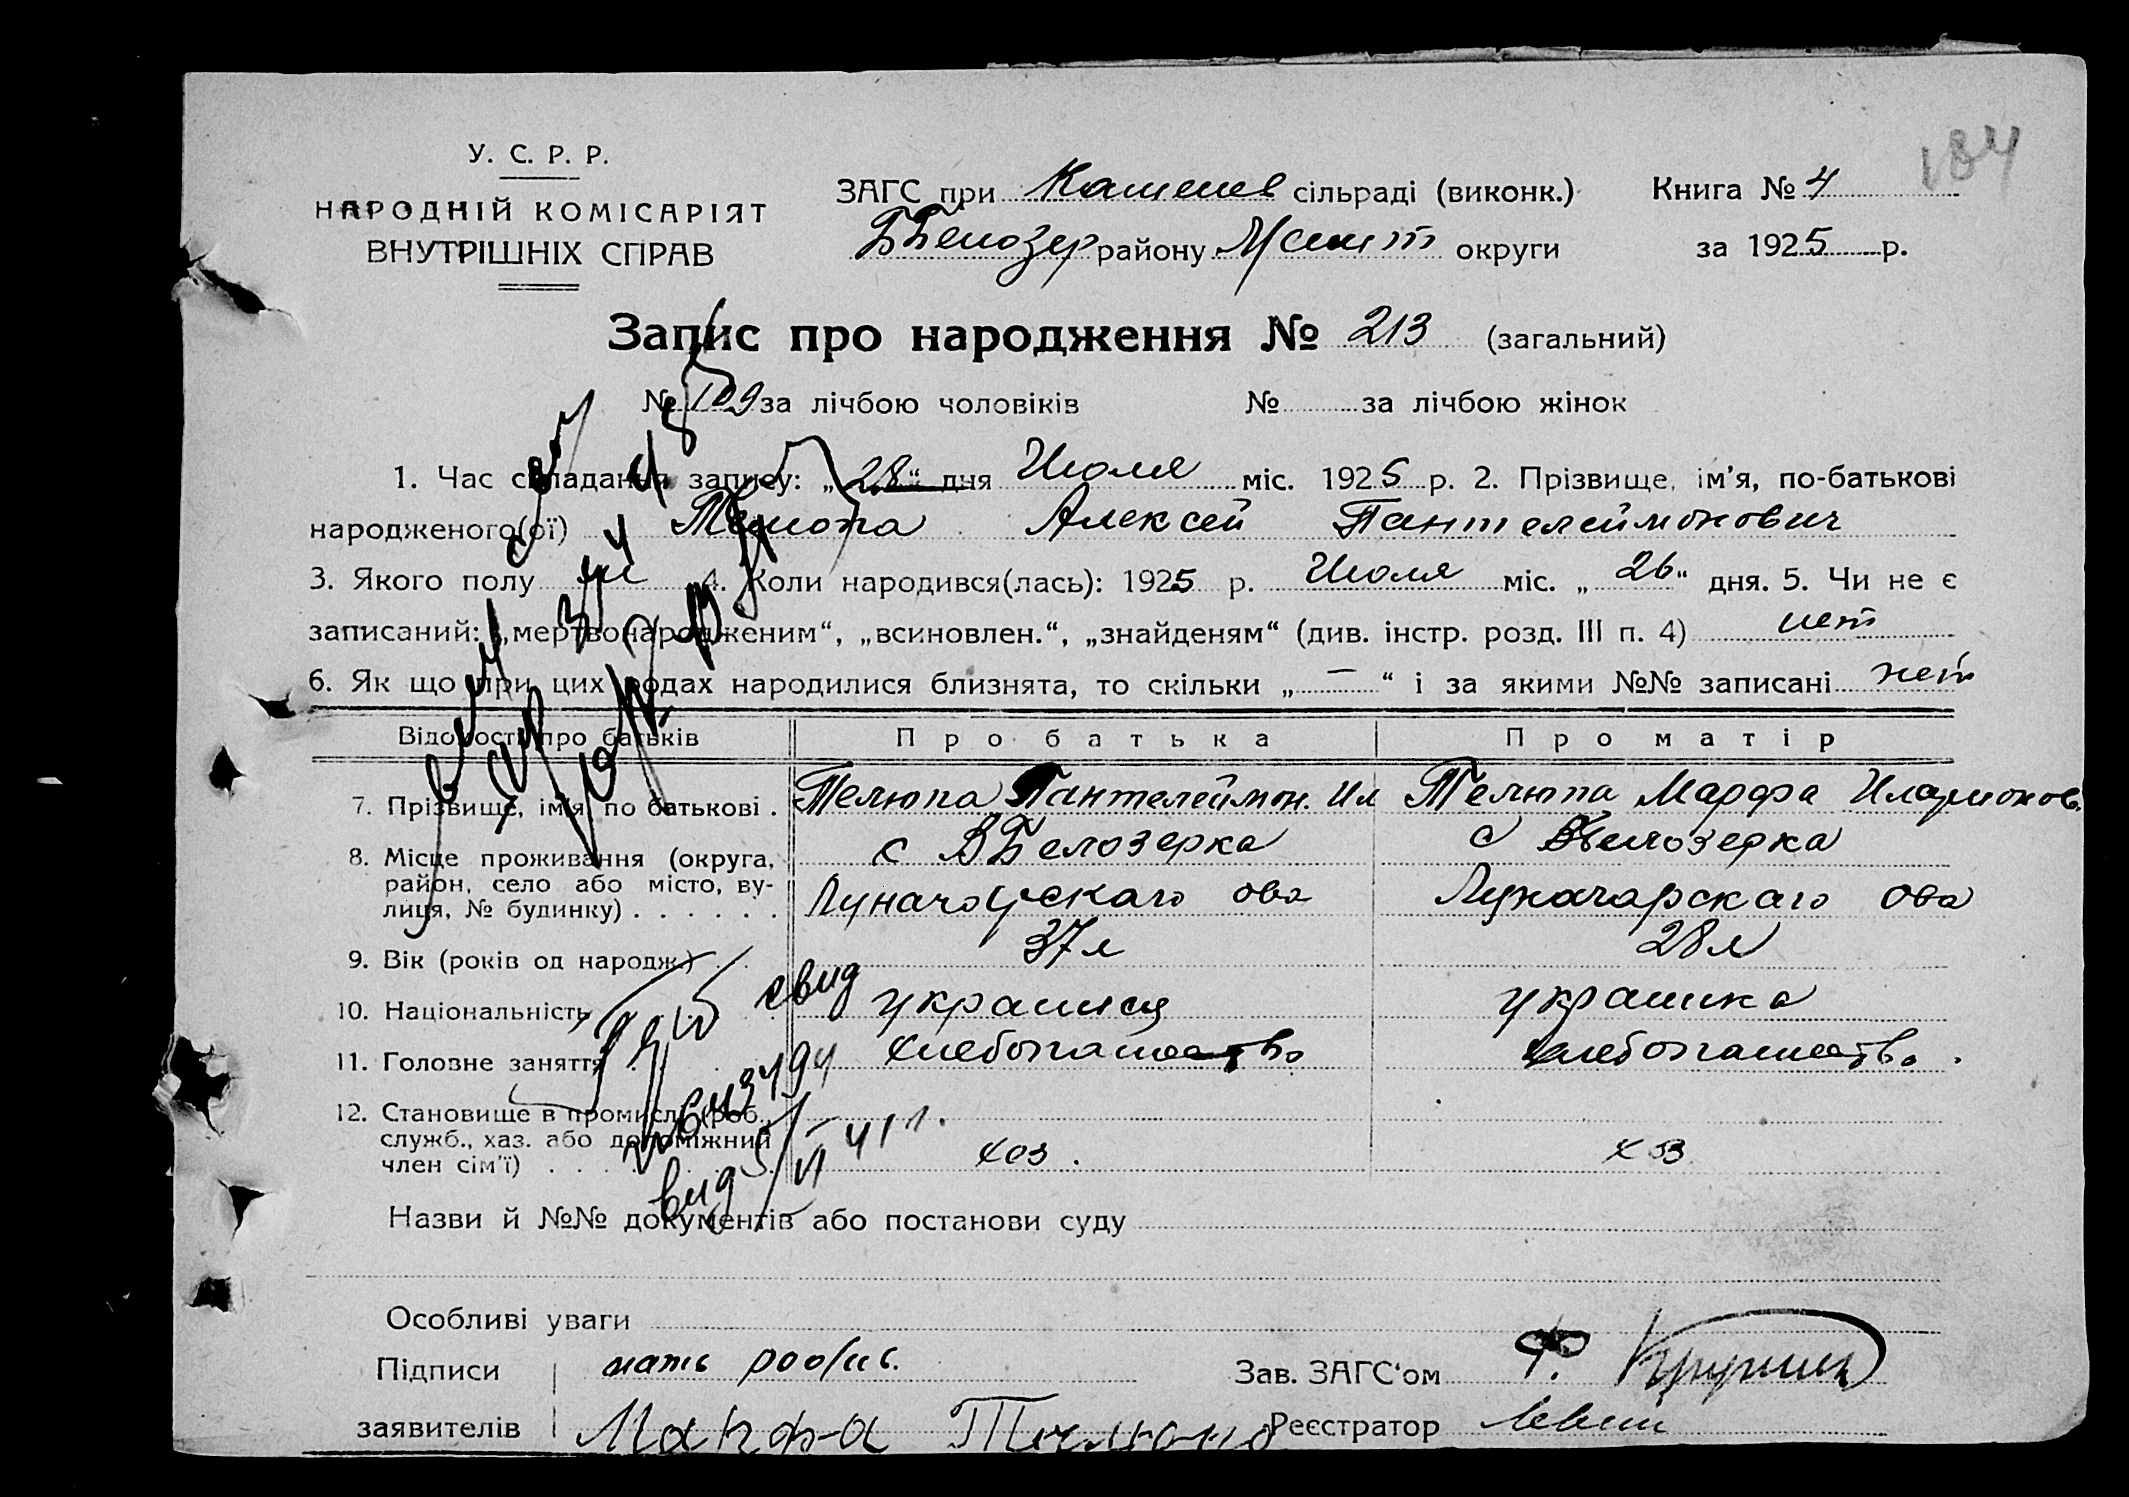 184
У. С. Р. Р.
НАРОДНІЙ КОМІСАРІЯТ
ВНУТРІШНІХ СПРАВ
ЗАГС при Каменев сільраді (виконк.) Книга № 4
ББелозер району Мелит округи за 1925 р.
Запис про народження № 213 (загальний)
№ 109 за лічбою чоловіків № за лічбою жінок
1. Час складання запису: „28“ дня Июля міс. 1925 р. 2. Прізвище, ім’я, по-батькові
народженого(ої) Телюпа Алексей Пантелеймонович
3. Якого полу м 4. Коли народився(лась): 1925 р. Июля міс. „26“ дня. 5. Чи не є
записаний: „мертвонародженим“, „всиновлен.“, „знайденям“ (див. інстр. розд. III п. 4) нет
6. Як що при цих родах народилися близнята, то скільки „—“ і за якими №№ записані нет
Відомості про батьків Про батька Про матір
7. Прізвище, ім’я, по батькові . Телюпа Пантелеймон. Ил Телюпа Марфа Иларионов.
8. Місце проживання (округа, с ВБелозерка с ВБелозерка
район, село або місто, ву-
лиця, № будинку) . . . . . . Луначарскаго ова Луначарскаго ова
9. Вік (років од народж.) . . 37 л 28 л
10. Національність украинец украинка
11. Головне заняття хлебопашество хлебопашество.
свид
12. Становище в промислі (роб.,
служб., хаз. або допоміжний
член сім’ї) . . . . хоз. хоз
вид 5/VI 41 г.
Назви й №№ документів або постанови суду
Особливі уваги
Підписи мать Зав. ЗАГС‘ом Ф.
заявителів Марфа Реєстратор